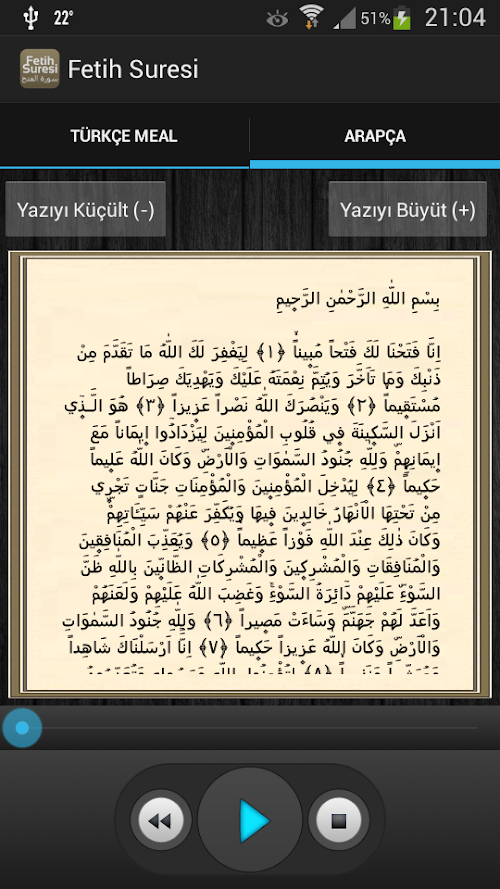 22°
51%
21:04
Fetih
Suresi
سورة الفتح
Fetih Suresi
TÜRKÇE MEAL
ARAPÇA
Yazıyı Küçült (-)
Yazıyı Büyüt (+)
بِسْمِ اللّٰهِ الرَّحْمٰنِ الرَّح۪يمِ
اِنَّا فَتَحْنَا لَكَ فَتْحاً مُب۪يناًۙ ﴿١﴾ لِيَغْفِرَ لَكَ اللّٰهُ مَا تَقَدَّمَ مِنْ
ذَنْبِكَ وَمَا تَاَخَّرَ وَيُتِمَّ نِعْمَتَهُ عَلَيْكَ وَيَهْدِيَكَ صِرَاطاً
مُسْتَق۪يماًۙ ﴿٢﴾ وَيَنْصُرَكَ اللّٰهُ نَصْراً عَز۪يزاً ﴿٣﴾ هُوَ الَّـذ۪ٓي
اَنْزَلَ السَّك۪ينَةَ ف۪ي قُلُوبِ الْمُؤْمِن۪ينَ لِيَزْدَادُٓوا ا۪يمَاناً مَعَ
ا۪يمَانِهِمْۜ وَلِلّٰهِ جُنُودُ السَّمٰوَاتِ وَالْاَرْضِۜ وَكَانَ اللّٰهُ عَل۪يماً
حَك۪يماًۙ ﴿٤﴾ لِيُدْخِلَ الْمُؤْمِن۪ينَ وَالْمُؤْمِنَاتِ جَنَّاتٍ تَجْر۪ي
مِنْ تَحْتِهَا الْاَنْهَارُ خَالِد۪ينَ ف۪يهَا وَيُكَفِّرَ عَنْهُمْ سَيِّـَٔاتِهِمْۜ
وَكَانَ ذٰلِكَ عِنْدَ اللّٰهِ فَوْزاً عَظ۪يماًۙ ﴿٥﴾ وَيُعَذِّبَ الْمُنَافِق۪ينَ
وَالْمُنَافِقَاتِ وَالْمُشْرِك۪ينَ وَالْمُشْرِكَاتِ الظَّٓانّ۪ينَ بِاللّٰهِ ظَنَّ
السَّوْءِۜ عَلَيْهِمْ دَٓائِرَةُ السَّوْءِۚ وَغَضِبَ اللّٰهُ عَلَيْهِمْ وَلَعَنَهُمْ
وَاَعَدَّ لَهُمْ جَهَنَّمَۜ وَسَٓاءَتْ مَص۪يراً ﴿٦﴾ وَلِلّٰهِ جُنُودُ السَّمٰوَاتِ
وَالْاَرْضِۜ وَكَانَ اللّٰهُ عَز۪يزاً حَك۪يماً ﴿٧﴾ اِنَّٓا اَرْسَلْنَاكَ شَاهِداً